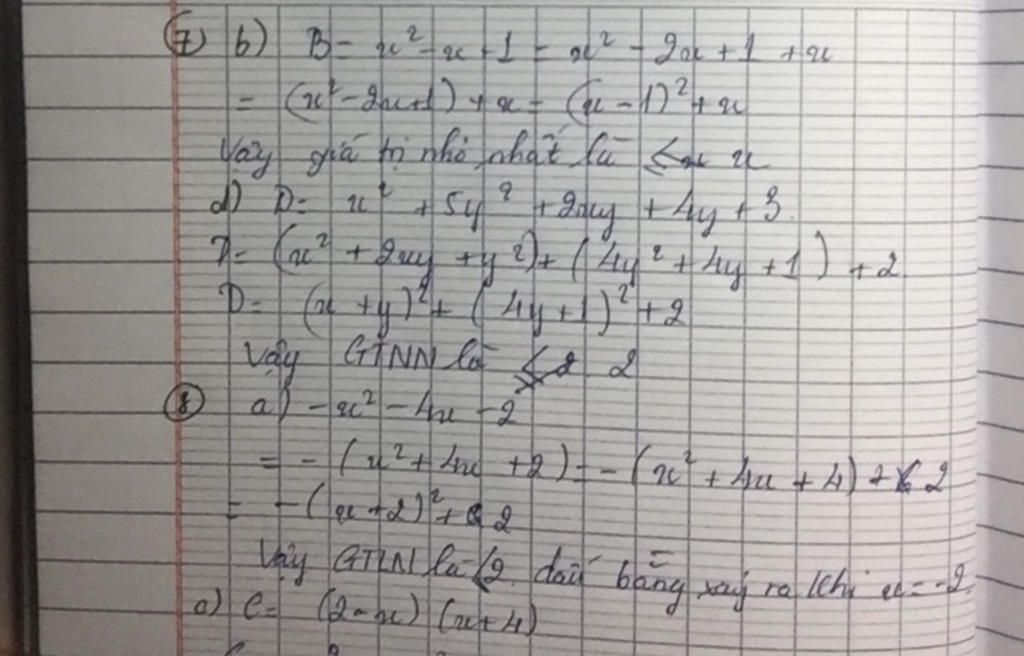 7) b) B = x² - x + 1 = x² - 2x + 1 + x
= (x² - 2x + 1) + x = (x - 1)² + x
Vậy giá trị nhỏ nhất là x
d) D = x² + 5y² + 2xy + 4y + 3
D = (x² + 2xy + y²) + (4y² + 4y + 1) + 2
D = (x + y)² + (4y + 1)² + 2
Vậy GTNN là 2
8) a) - x² - 4x - 2
= - (x² + 4x + 2) = - (x² + 4x + 4) + 2
= - (x + 2)² + 2
Vậy GTLN là 2 dấu bằng xảy ra khi x = -2
c) C = (2 - x) (x + 4)